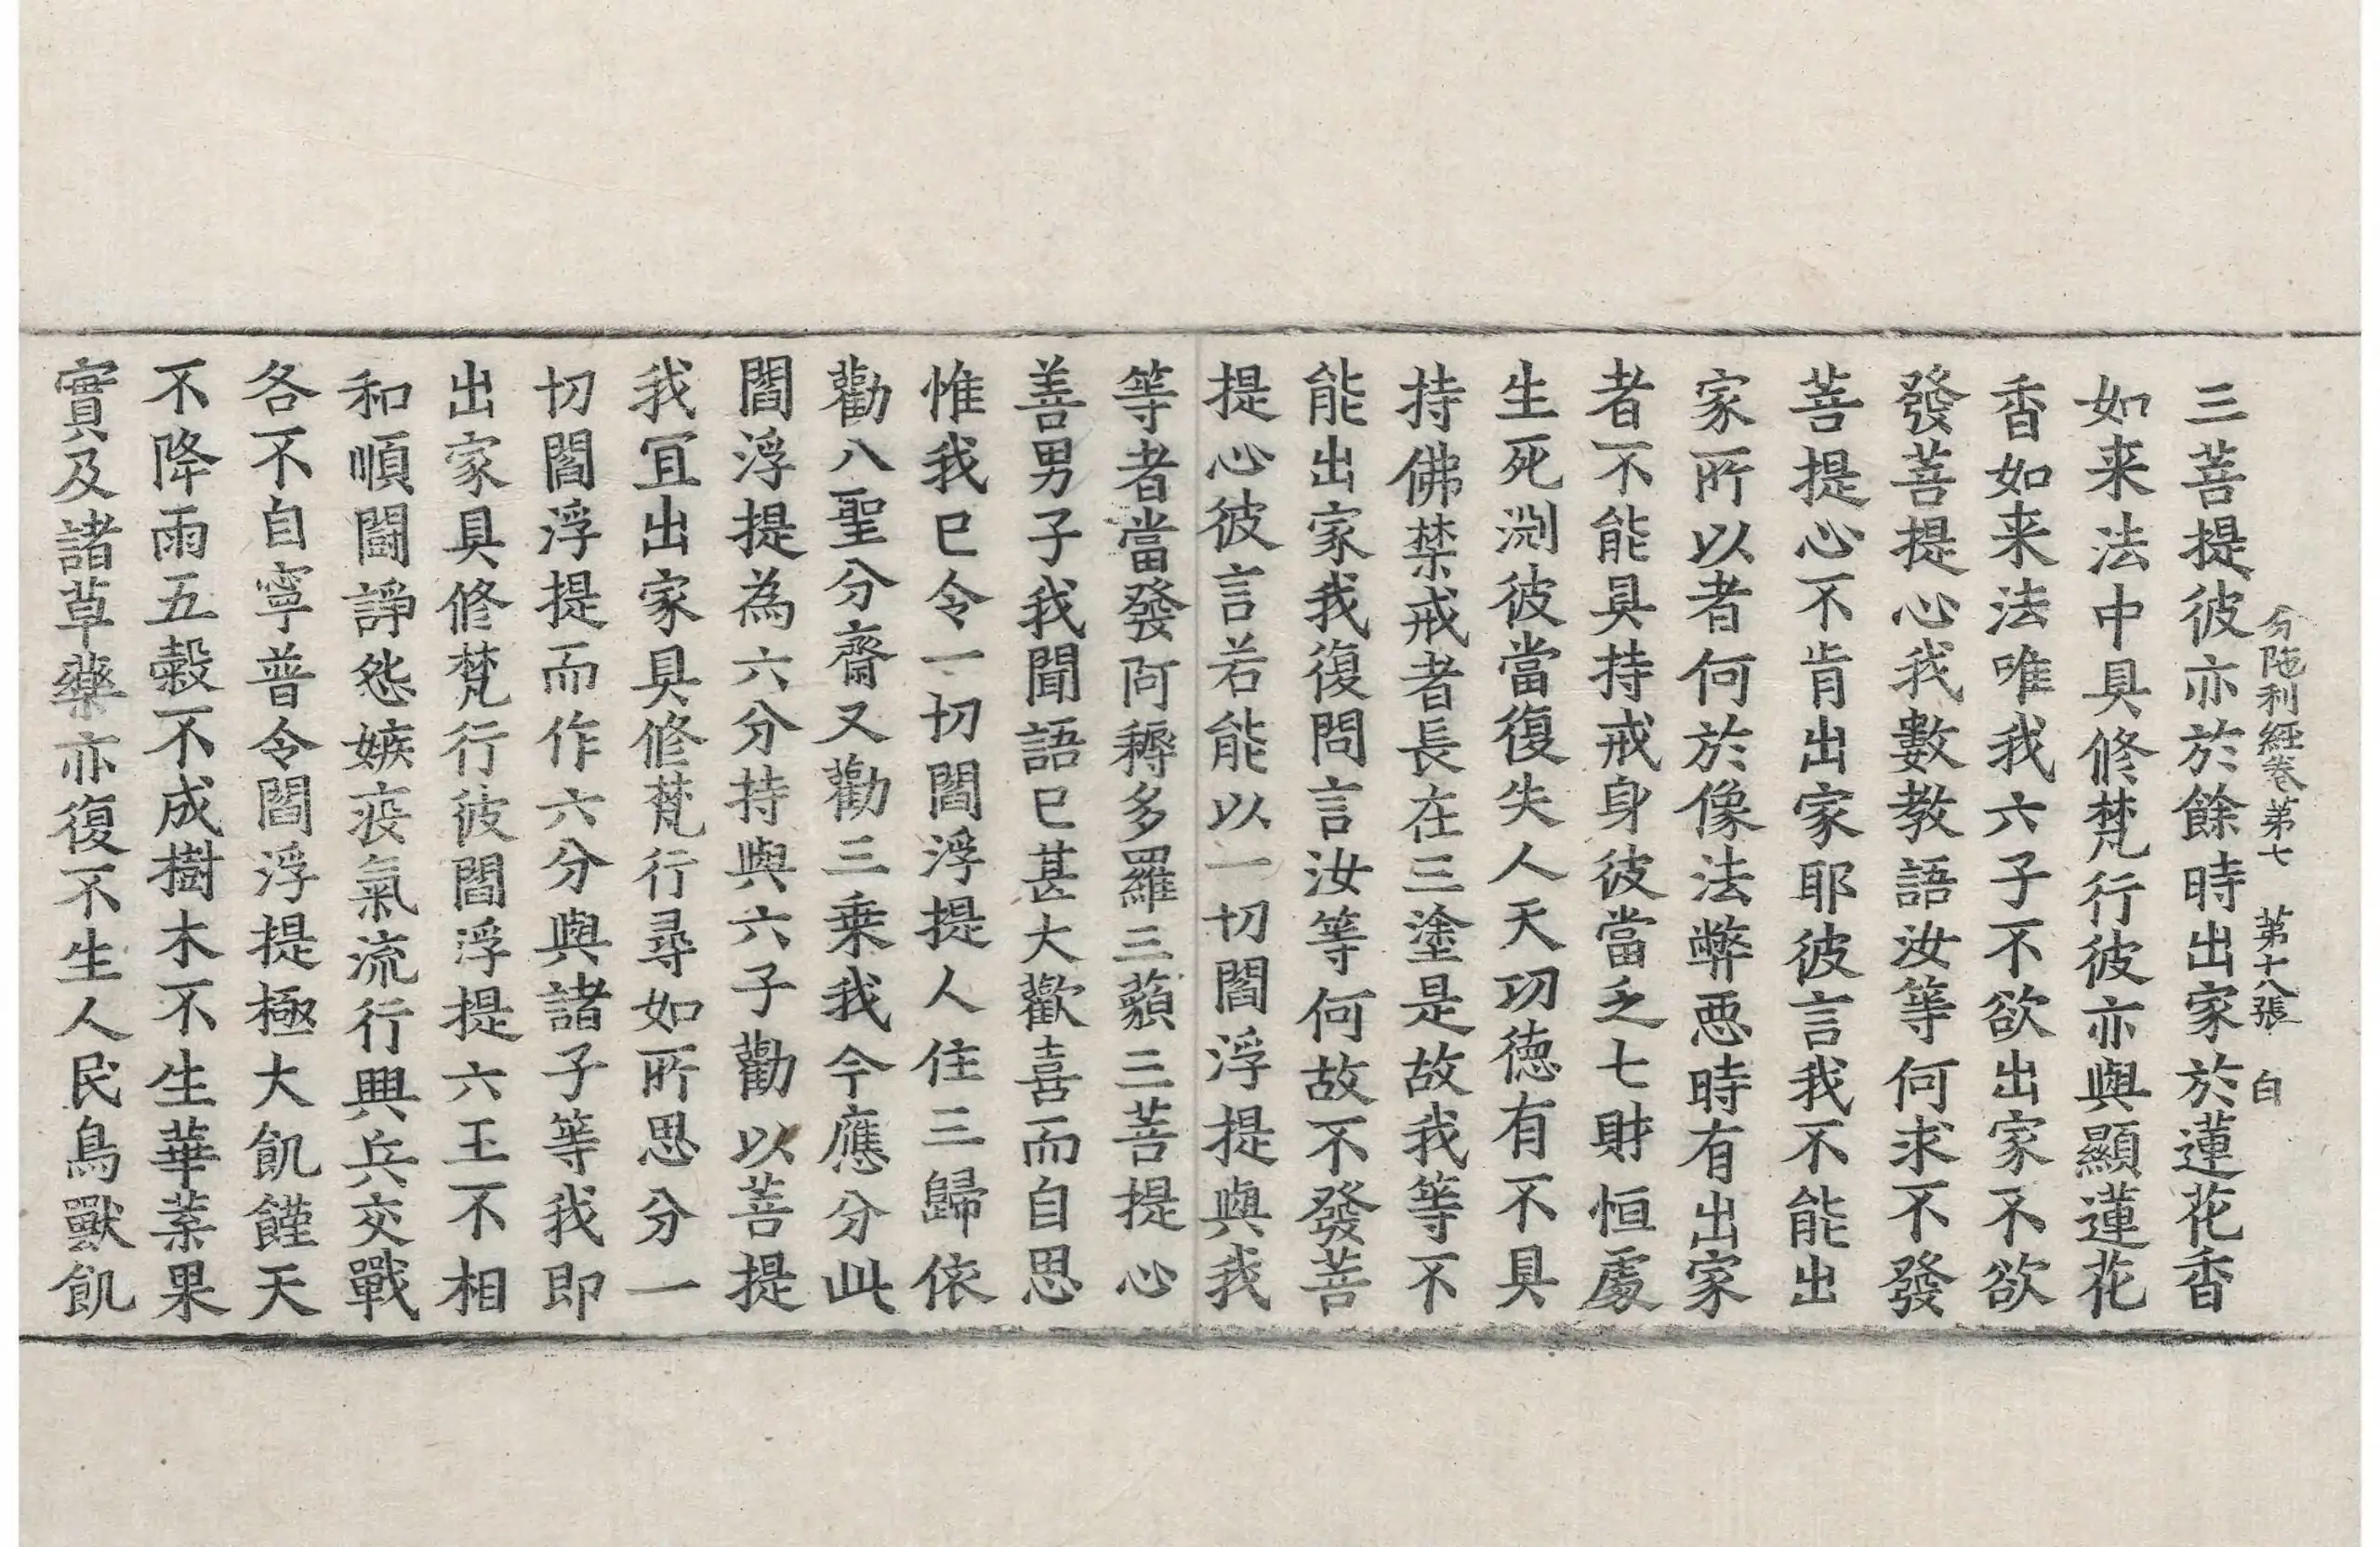 分陁利經卷第七 第十八張 白
三菩提彼亦於餘時出家於蓮花香
如来法中具修梵行彼亦與顯蓮花
香如来法唯我六子不欲出家不欲
發菩提心我數教語汝等何求不發
菩提心不肯出家耶彼言我不能出
家所以者何於像法弊惡時有出家
者不能具持戒身彼當乏七財恒處
生死渕彼當復失人天功徳有不具
持佛禁戒者長在三塗是故我等不
能出家我復問言汝等何故不發菩
提心彼言若能以一切閻浮提與我
等者當發阿耨多羅三藐三菩提心
善男子我聞語已甚大歡喜而自思
惟我已令一切閻浮提人住三歸依
勸八聖分齋又勸三乗我今應分此
閻浮提為六分持與六子勸以菩提
我冝出家具修梵行尋如所思分一
切閻浮提而作六分與諸子等我即
出家具修梵行彼閻浮提六王不相
和順鬪諍怨嫉疫氣流行興兵交戰
各不自寧普令閻浮提極大飢饉天
不降雨五穀不成樹木不生華菓果
實及諸草藥亦復不生人民鳥獸飢